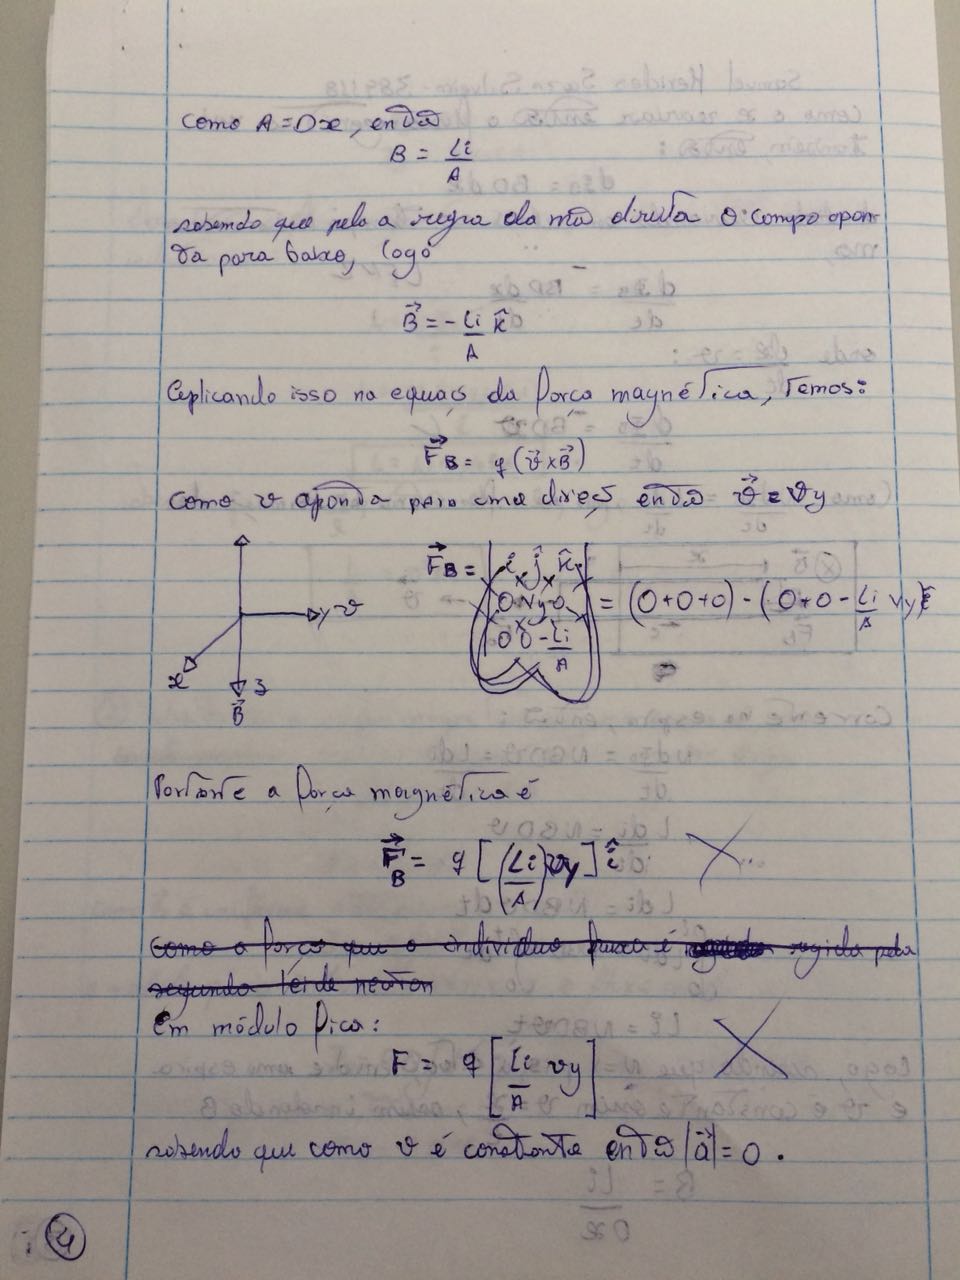 Como A = Dx, então
B = Li/A
sabendo que pela a regra da mão direita o campo apon-
ta para baixo, logo
B⃗ = - Li/A k̂
Aplicando isso na equaçã da força magnética, temos:
F⃗B = q(v⃗ x B⃗)
Como v aponta para uma direçã, então v⃗ = vy
F⃗B = | î ĵ k̂ |
| 0 vy 0 | = (0+0+0) - (0+0 - Li/A vy) î
| 0 0 -Li/A |
y v
x
z
B⃗
Portante a força magnética é
F⃗B = q [(Li/A) vy] î
Como a força que o individuo puxa é regida pela
segunda lei de newton
Em módulo fica:
F = q [Li/A vy]
sabendo que como v é constante então |a⃗| = 0 .
4